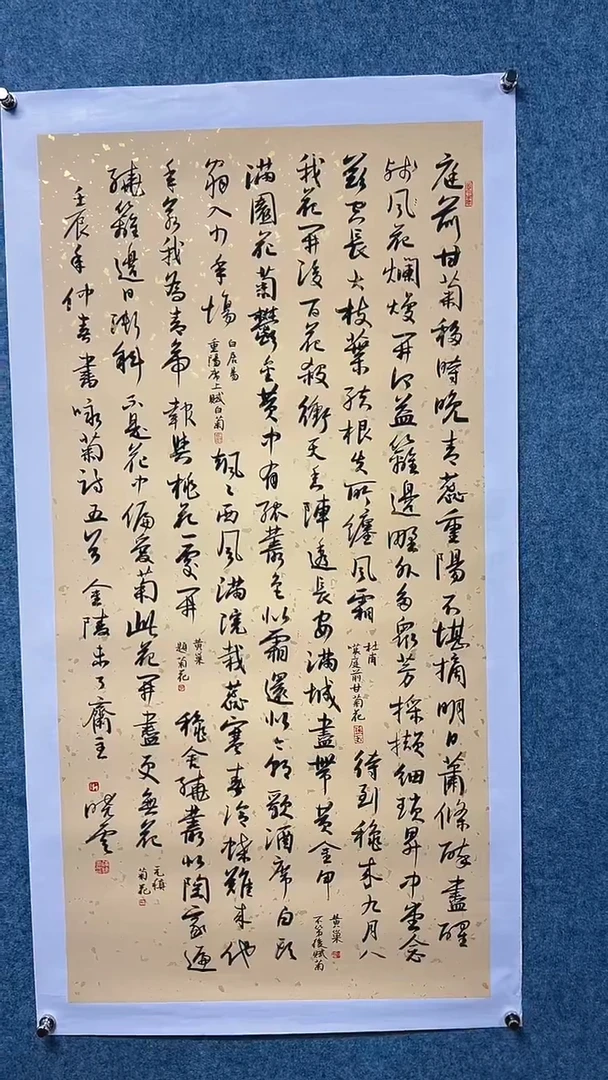 庭前甘菊移時晚青蕊重陽不堪摘明日蕭條醉盡醒
殘風花爛熳開何益籬邊野外多眾芳採擷細瑣昇中堂念
茲空長大枝葉結根失所纏風霜
杜甫
嘆庭前甘菊花
待到穐來九月八
我花開後百花殺衝天香陣透長安滿城盡帶黃金甲
黃巢
不第後賦菊
滿園花菊鬱金黃中有孤叢色似霜還似今朝歌酒席白頭
翁入少年場
白居易
重陽席上賦白菊
颯々西風滿院栽蕊寒香冷蝶難來他
年若我為青帝報與桃花一處開
黃巢
題菊花
穐舍繞叢似陶家遍
繞籬邊日漸斜不是花中偏愛菊此花開盡更無花
元稹
菊花
壬辰年仲春書咏菊詩五首金陵未了齋主
曉雲